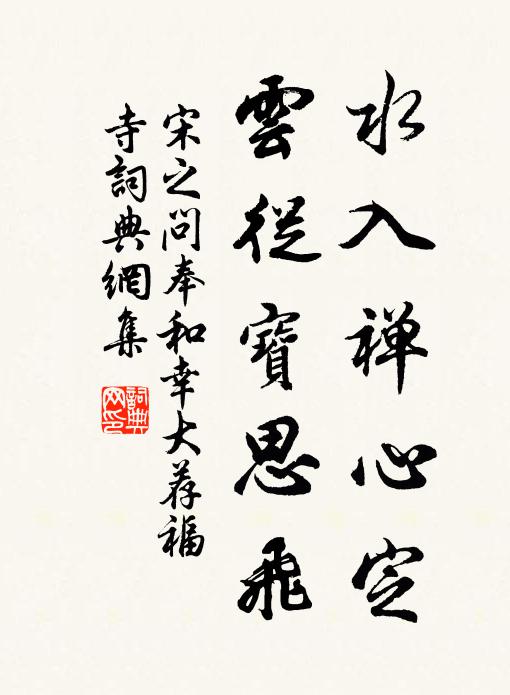 水入禅心定
雲從寶思飛
宋之问奉和幸大荐福
寺詞典網集
詞典
网印